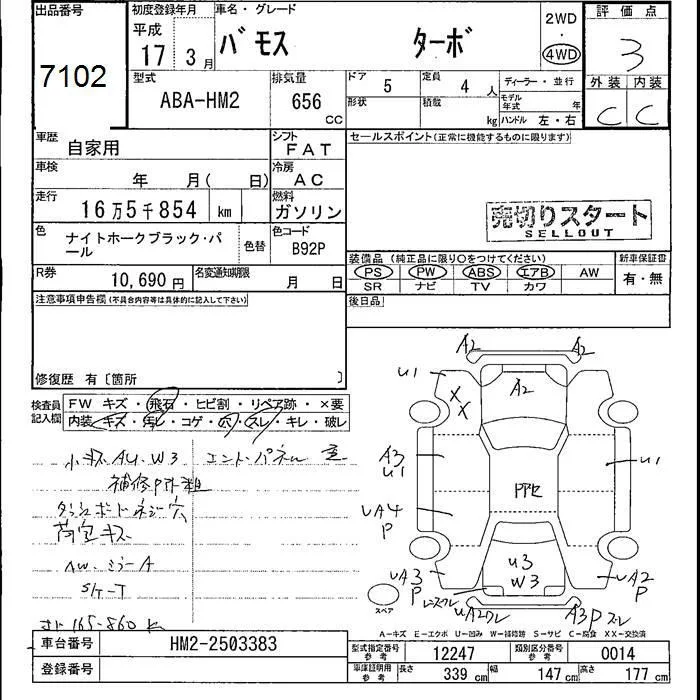 出品番号 初度登録年月 車名・グレード 2WD 評価点
7102 平成 17 3月 バモス ターボ ・ 4WD 3
型式 排気量 ドア 定員 ディーラー・並行 外装 内装
ABA-HM2 656 CC 5 4人 モデル年式 年 C C
形状 積載 kg ハンドル 左・右
車歴 自家用 シフト FAT セールスポイント(正常に機能するものに限ります)
車検 年 月( 日) 冷房 AC
走行 16万5千854 km 燃料 ガソリン 売切りスタート
SELLOUT
色 ナイトホークブラック・パール 色替 色コード B92P
装備品(純正品に限り○をつけてください) 新車保証書
R券 10,690円 名変通知期限 月 日 PS PW ABS エアB AW 有・無
SR ナビ TV カワ
注意事項申告欄(不具合内容等は具体的に記入して下さい) 後日品
修復歴 有〔箇所 〕
検査員記入欄 FW キズ・飛石・ヒビ割・リペア跡・×要
内装・キズ・汚レ・コゲ・穴・スレ・キレ・破レ
A2 A2
U1 A2
X X
小キズ AU.W3
A3 U1 U1
補修
ダッシュボードネジ穴
UA4 P
荷室キズ
AW.ミラーA
U3 W3
UA3 P UA2 P
スペア
A3P スレ
A-キズ E-エクボ U-凹み W-補修跡 S-サビ C-腐食 XX-交換済
車台番号 HM2-2503383 型式指定番号 参考 12247 類別区分番号 参考 0014
登録番号 車庫証明用 参考 長さ 339 cm 幅 147 cm 高さ 177 cm